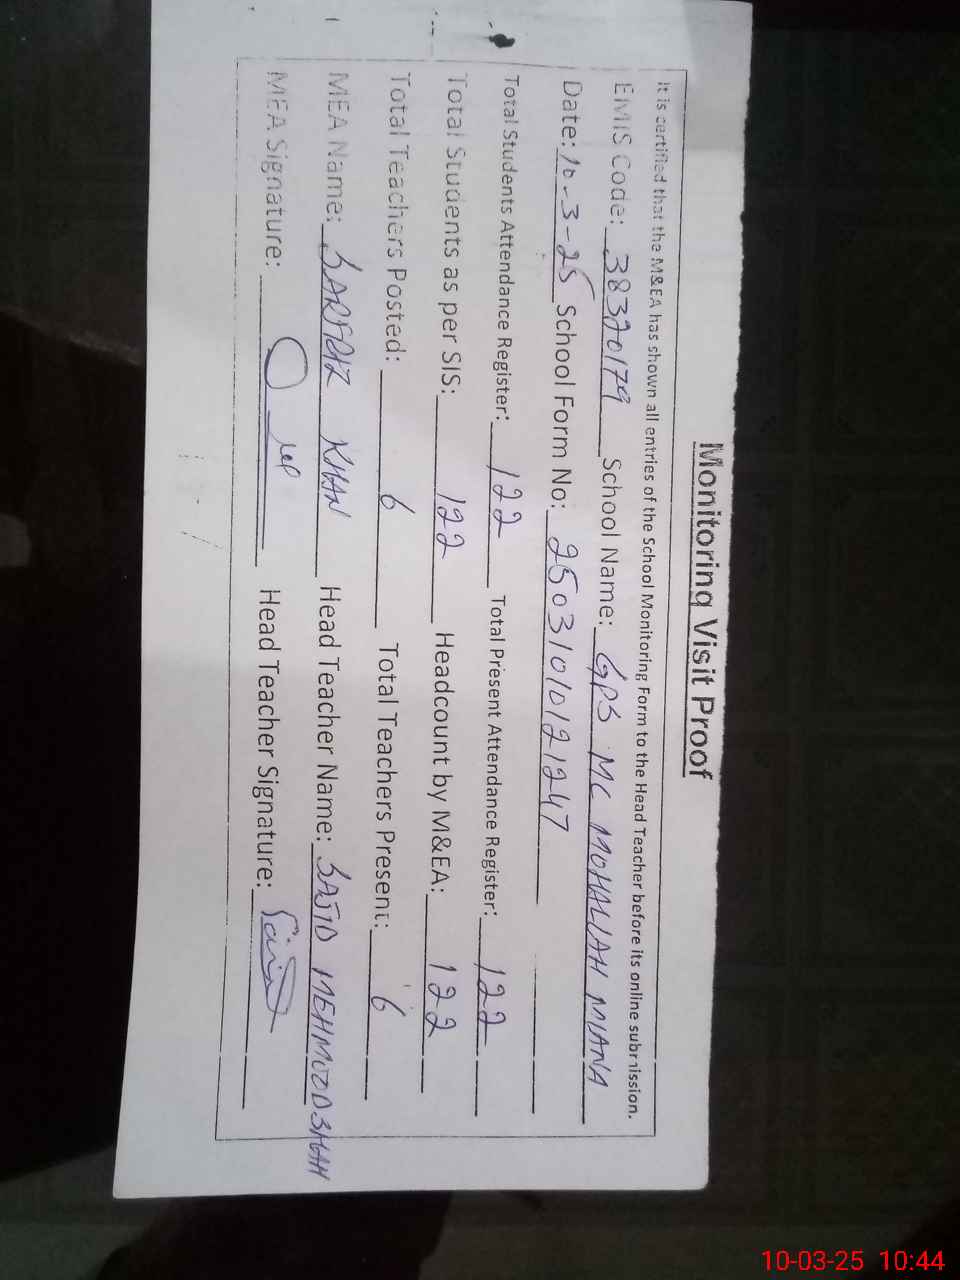 Monitoring Visit Proof
It is certified that the M&EA has shown all entries of the School Monitoring Form to the Head Teacher before its online submission.
EMIS Code: 38320179 School Name: GPS MC MOHALLAH MIANA
Date: 10-3-25 School Form No: 25031010121247
Total Students Attendance Register: 122 Total Present Attendance Register: 122
Total Students as per SIS: 122 Headcount by M&EA: 122
Total Teachers Posted: 6 Total Teachers Present: 6
MEA Name: SARFRAZ KHAN Head Teacher Name: SAJID MEHMOOD SHAH
MEA Signature: Head Teacher Signature:
10-03-25 10:44